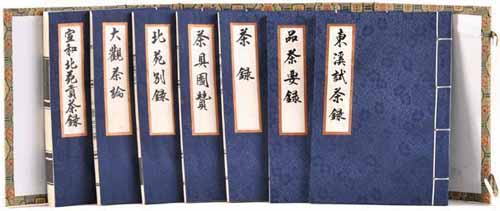 東溪試茶錄
品茶要錄
茶錄
茶具圖贊
北苑別錄
大觀茶論
宣和北苑貢茶錄